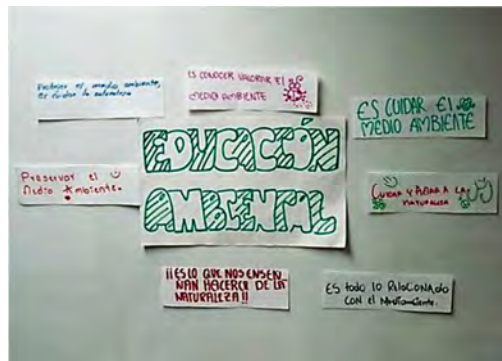 Proteger el medio ambiente,
es cuidar la naturaleza
ES CONOCER VALORAR El
MEDIO AMBIENTE
ES CUIDAR El
MEDIO AMBIENTE
EDUCACIÓN
AMBIENTAL
Preservar el
Medio Ambiente.
CUIDAR Y AMAR A LA
NATURALEZA
¡¡ES LO QUE NOS ENSEÑ
NAN HACERCA DE LA
NATURALEZA!!
ES todo lo RELOCIONADO
CON el Medioambiente.